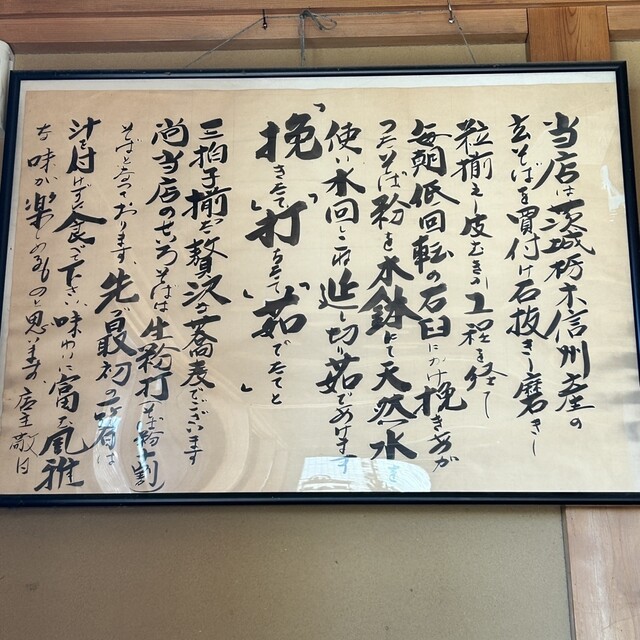 当店は茨城栃木信州産の
玄そばを買付け石抜きし磨きし
粒揃えし皮むきの工程を経て
毎朝低回転の石臼にかけ挽きあが
ったそば粉を木鉢にて天然水を
使い水回しこね延し切り茹であげます
「挽きたて」「打ちたて」「茹でたて」と
三拍子揃った贅沢な蕎麦でございます
尚当店のせいろそばは生粉打(そば粉十割)
そばとなっております。先ず最初の一箸は
汁を付けずに食べて下さい味わいに富んだ風雅
な味が楽しめるものと思います 店主敬白